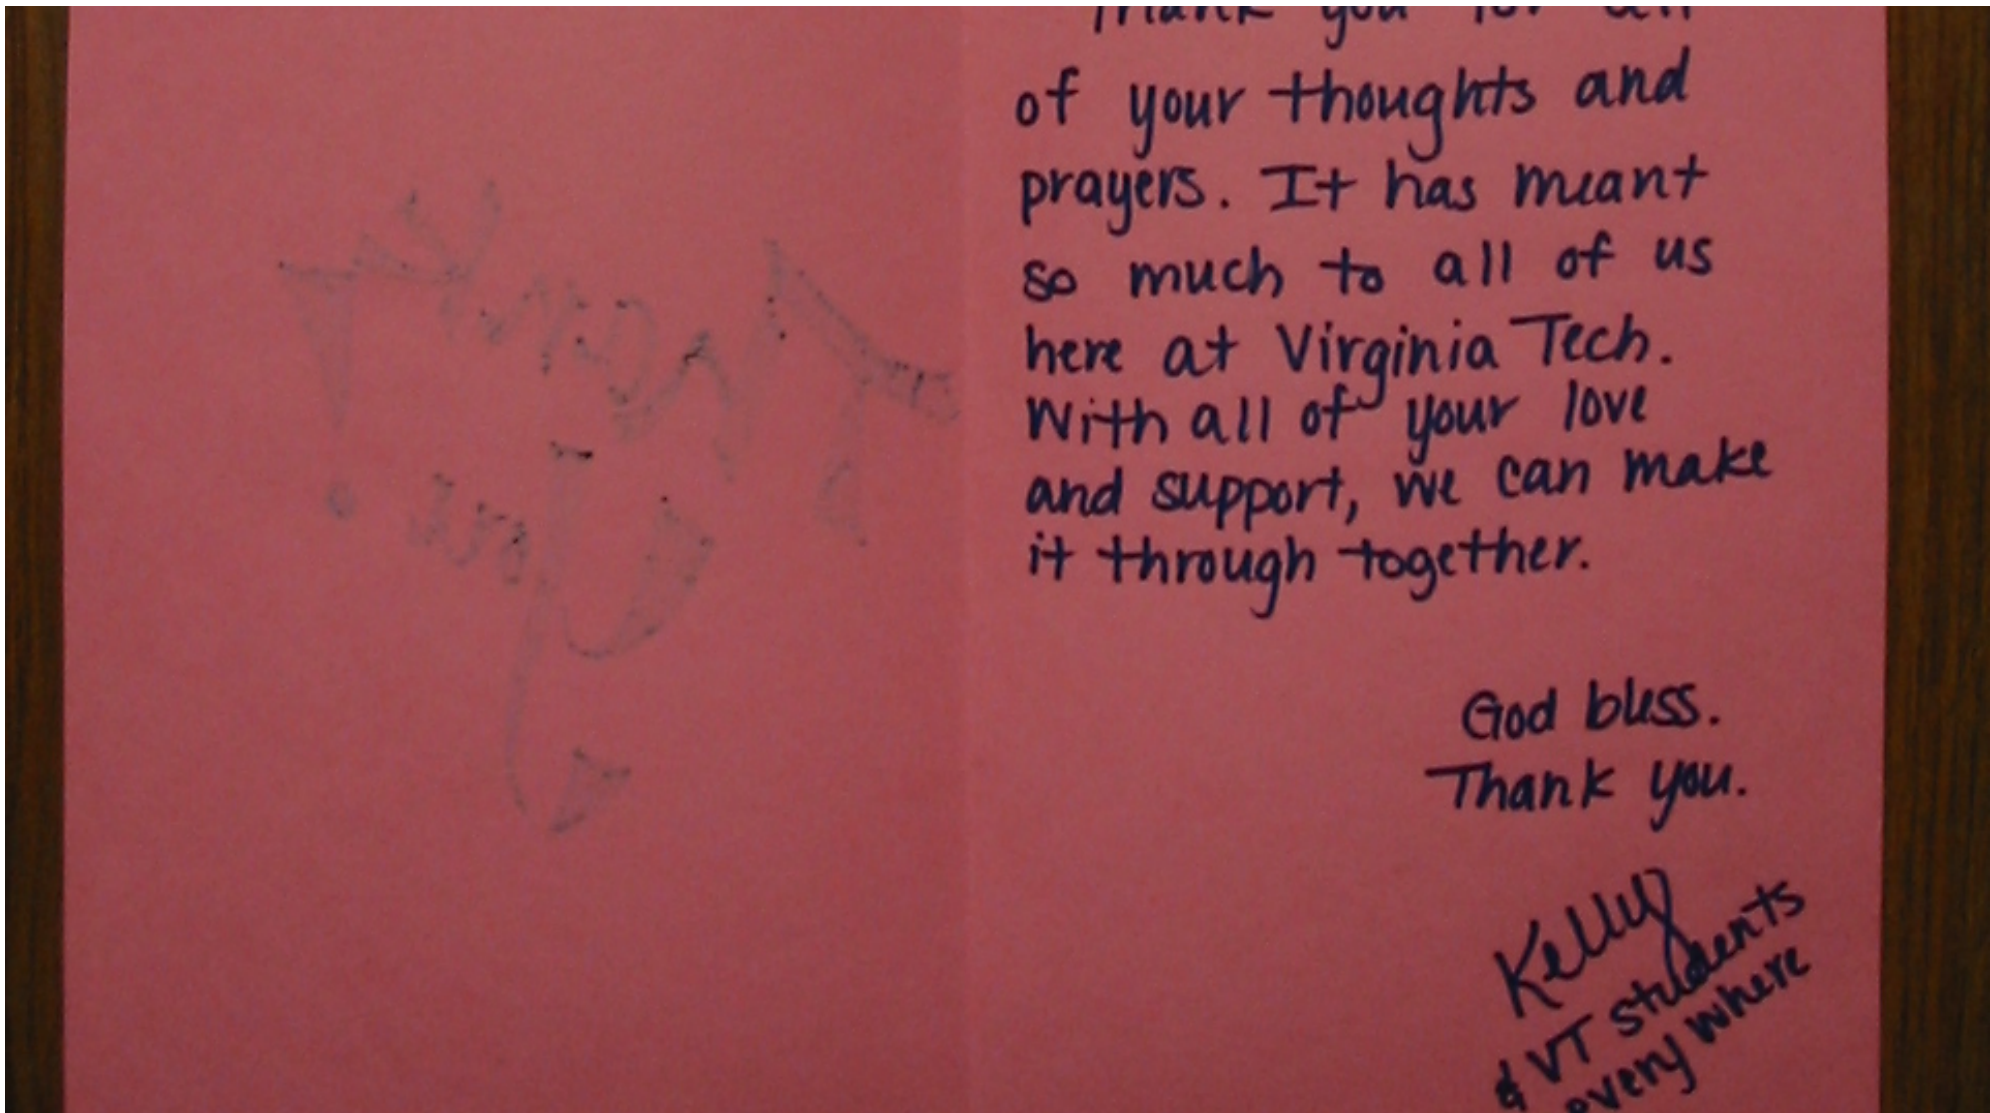 Thank you for all
of your thoughts and
prayers. It has meant
so much to all of us
here at Virginia Tech.
With all of your love
and support, we can make
it through together.
God bless.
Thank you.
Kelly
& VT students
every where
Thank
You!